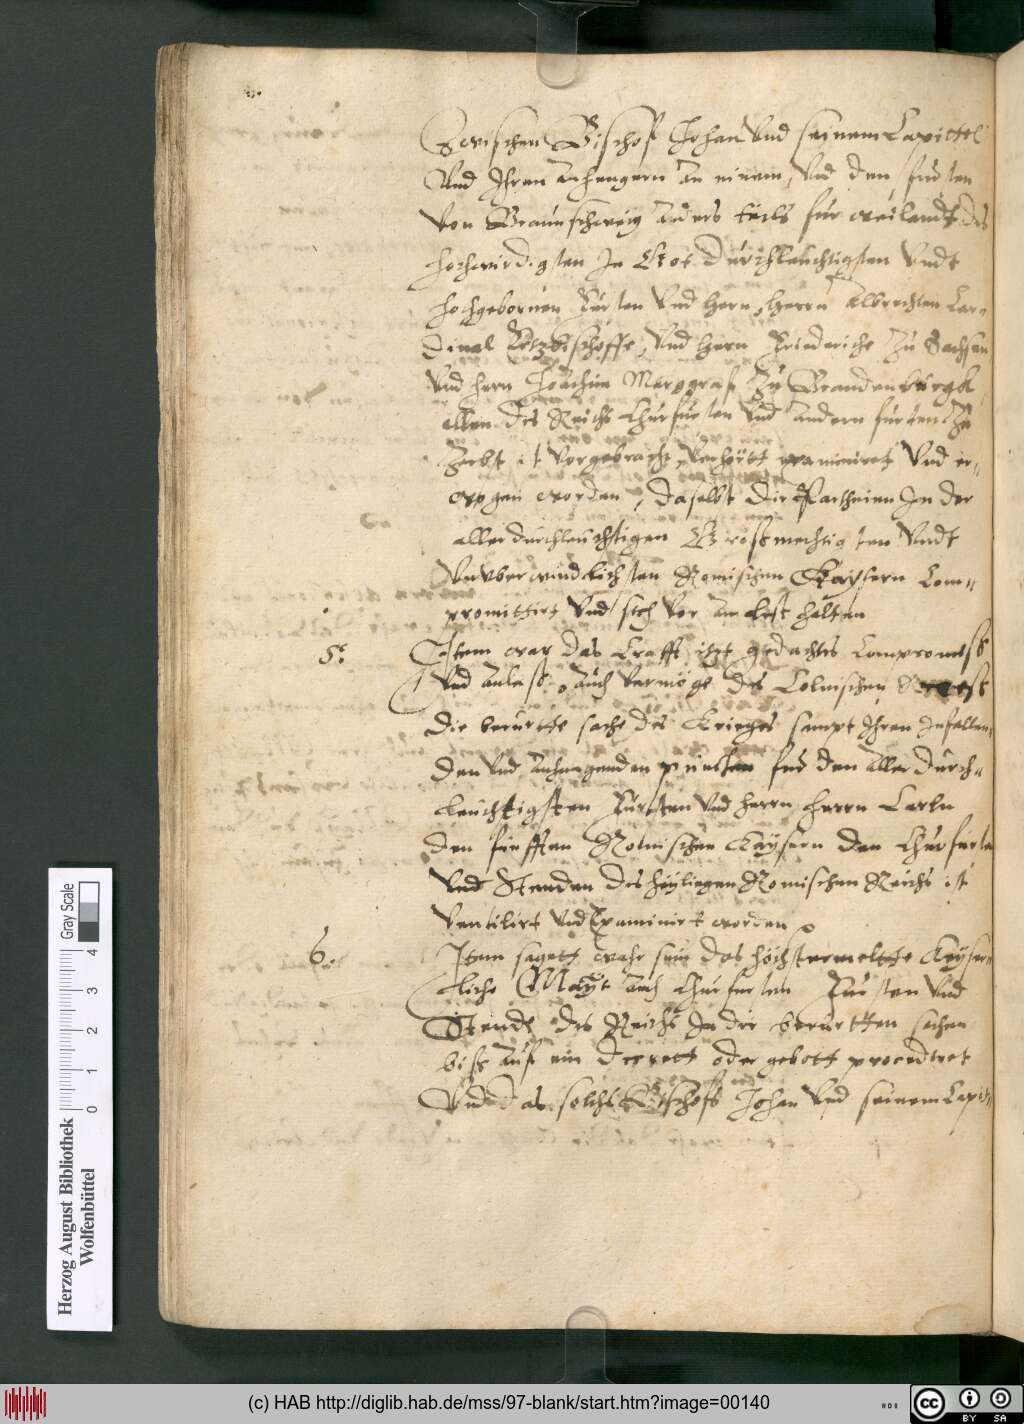 Zwischen Bischof Johan Und seinem Capittel
Und Ihren Anhengern An einem, Und den fursten
Von Braunschweig Anders teils fur weilandt des
hochwirdigsten In Got Durchleuchtigsten Undt
hochgebornen Fursten Und hern, herrn Albrechten Car=
dinal Ertzbischoffe, Und hern Friederiche Zu Sachsen
Und hern Joachim Marggraf Zu Brandenburgk
allen des Reichs Churfursten Und Andern fursten Zu
Zerbst ist Vorgebracht, Verhörtt examiniret Und er=
wogen worden, daselbst die Partheien In der
allerdurchleuchtigen Grosmechtigsten Undt
Unuberwindlichsten Romischen Kaysern Com=
promittirt Und sich Vor Anlest halten
5.
Item war das Crafft itzt gedachts Compromiss
Und Anlass, Auch Vermöge des Colnischen
die berurtte sache des Krieges sampt Ihren Infallen=
den Und Anhangenden puncten fur den Aller Durch=
leuchtigsten Fursten Und herrn herrn Carln
den funfften Romischen Kaysern den Churfursten
Und Stenden des heyligen Romischen Reichs ist
Ventilirt Und Examinirt worden
6.
Item sagett wahr sein das hochstermeltte Keyser=
liche Mayt Auch Churfursten Fursten Und
Stende des Reichs In der berurtten sachen
bis Auf ein decrett oder gebott procediret
Und das solchs Bischofs Johan Und seinem Capit=
Herzog August Bibliothek
Wolfenbüttel
0 1 2 3 4
Gray Scale
(c) HAB http://diglib.hab.de/mss/97-blank/start.htm?image=00140
HAB
cc BY SA